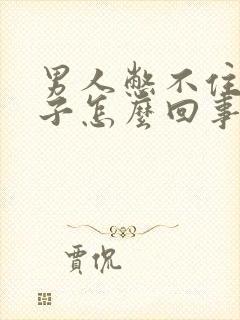 男人憋不住
子怎麼回事
賈侃